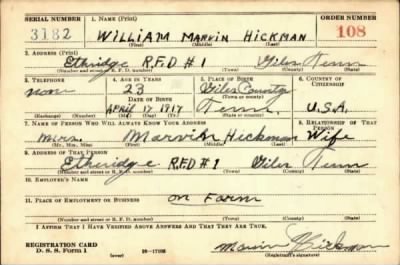 SERIAL NUMBER 1. NAME (Print) ORDER NUMBER
3182 WILLIAM MARVIN HICKMAN 108
(First) (Middle) (Last)
2. ADDRESS (Print)
Ethridge R.F.D #1 Giles Tenn
(Number and street or R. F. D. number) (Town) (County) (State)
3. TELEPHONE 4. AGE IN YEARS 5. PLACE OF BIRTH 6. COUNTRY OF CITIZENSHIP
none 23 Giles County
DATE OF BIRTH (Town or county)
April 17, 1917 Tenn. U.S.A.
(Exchange) (Number) (Mo.) (Day) (Yr.) (State or country)
7. NAME OF PERSON WHO WILL ALWAYS KNOW YOUR ADDRESS 8. RELATIONSHIP OF THAT PERSON
mrs. Marvin Hickman Wife
(Mr., Mrs., Miss) (First) (Middle) (Last)
9. ADDRESS OF THAT PERSON
Etheridge R.F.D #1 Giles Tenn
(Number and street or R. F. D. number) (Town) (County) (State)
10. EMPLOYER'S NAME
11. PLACE OF EMPLOYMENT OR BUSINESS
on Farm
(Number and street or R. F. D. number) (Town) (County) (State)
I AFFIRM THAT I HAVE VERIFIED ABOVE ANSWERS AND THAT THEY ARE TRUE.
REGISTRATION CARD
D. S. S. Form 1 (over) Marvin Hickman
(Registrant's signature)